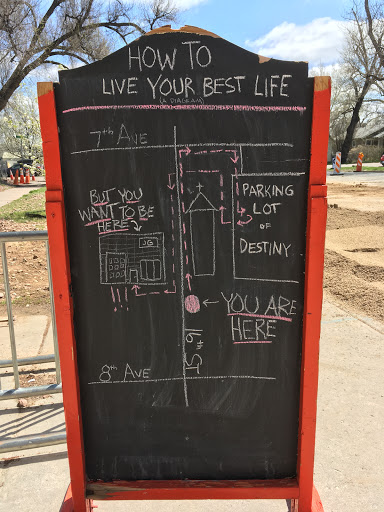 HOW TO
LIVE YOUR BEST LIFE
(A DIAGRAM)
7th AVE
BUT YOU
WANT TO BE
HERE
JG
PARKING
LOT
OF
DESTINY
YOU ARE
HERE
16th ST
8th AVE